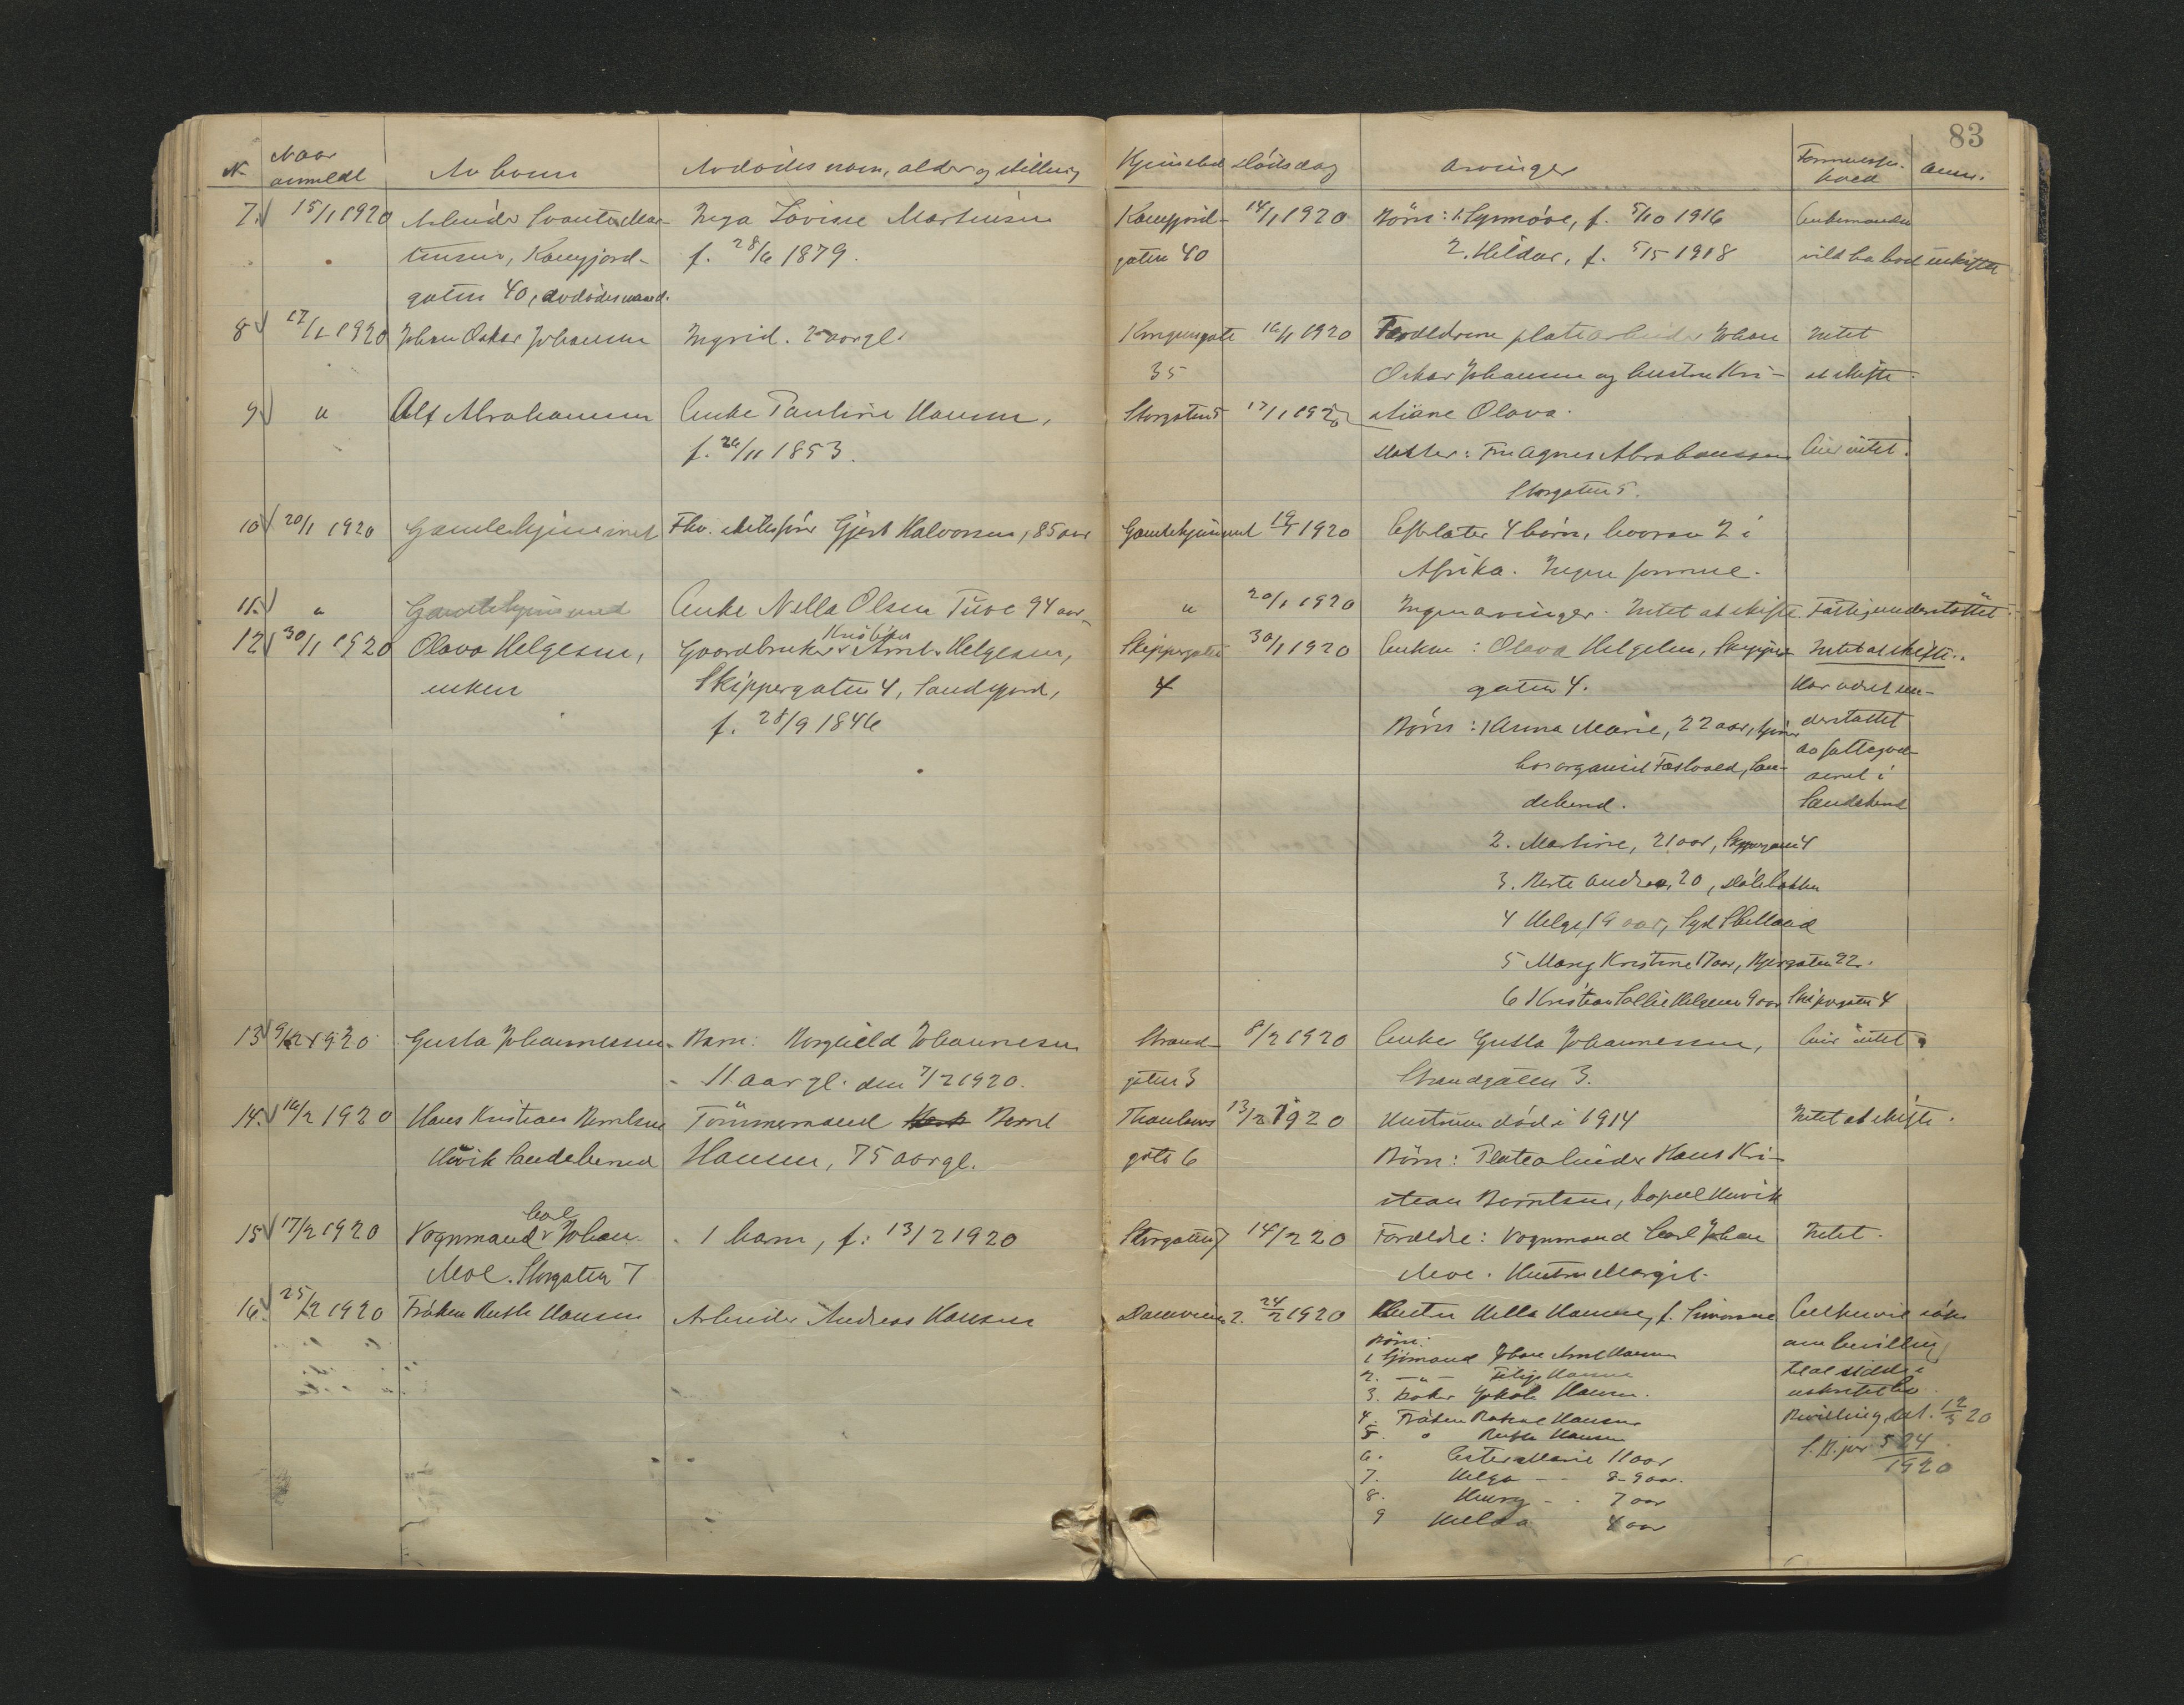 83
No Naar anmeldt Av hvem Avdødes navn, alder og stilling Hjemsted dödsdag Arvinger Formuesforhold Anm.
7. 15/1 1920 Arbeider Mar- Inga Lovise Martinsen Kamfjord- 14/1 1920 Börn: 1. Synnöve, f. 5/10 1916 Enkemanden
tinsen, Kamfjord- f. 28/6 1879. gaten 40 2. Hildar, f. 5/5 1918 vil ha bod uskiftet
gaten 40, avdödes mand.
8 17/1 1920 Johan Oskar Johansen Ingrid. 2 aar gl. Kongensgate 16/1 1920 Forældrene platearbeider Johan Intet
35 Oskar Johansen og hustru Kri- at skifte.
9 " Alf Abrahamsen Enke Pauline Hansen, Storgaten 5 17/1 1920 stiane Olava.
f. 26/11 1853. Datter: Fru Agnes Abrahamsen Eier intet.
Storgaten 5.
10 20/1 1920 Gamlehjemmet Fhv. Gjert Halvorsen, 85 aar Gamlehjemmet 19/1 1920 Efterlater 4 börn, hvorav 2 i
Afrika. Ingen formue.
11. " Gamlehjemmet Enke Nella Olsen Tuve 94 aar " 20/1 1920 Ingen arvinger. Intet at skifte. Fattigunderstöttet.
12 30/1 1920 Olava Helgesen, Gaardbruker Kristian Helgesen, Skippergaten 30/1 1920 Enken: Olava Helgesen, Skipper- Intet at skifte.
enken Skippergaten 4, Sandefjord, 4 gaten 4. Har været un-
f. 28/9 1846 Börn: 1 Anna Marie, 22 aar, derstöttet
hos organist Fastvold, San- av fattigvæ-
dehered. senet i
Sandehered
2. Martine, 21 aar, Skippergaten 4
3. Berte Andrea, 20,
4 Helge 19 aar, Syd Shetland
5 Mary Kristine 17 aar, Bjergaten 22.
6 Kristian Helgesen 9 aar Skippergaten 4
13 9/2 1920 Gusta Johannessen Barn: Borghild Johannesen Strand- 8/2 1920 Enke Gusta Johannessen, Eier intet
11 aar gl. den 7/2 1920. gaten 3 Strandgaten 3.
14. 16/2 1920 Hans Kristian Berntsen Tömmermand Bernt Thaulows 13/2 1920 Hustruen död i 1914 Intet at skifte.
Huvik Sandehered Hansen, 75 aar gl. gate 6 Börn: Platearbeider Hans Kri-
stian Berntsen, bopæl Huvik
15 17/2 1920 Vognmand Carl Johan 1 barn, f: 13/2 1920 Storgaten 7 14/2 20 Forældre: Vognmand Carl Johan Intet.
Moe. Storgaten 7 Moe. Hustru Margit.
16. 25/2 1920 Fröken Ruth Hansen Arbeider Andreas Hansen 2. 24/2 1920 Enken Hilda Hansen, f. Simonsen Enken vil söke
Börn: om bevilling
1 Sjömand Johan Hansen til at sidde i
2. — " — Filip Hansen uskiftet bo.
3. Baker Jakob Hansen. Bevilling dat. 12/3 20
4. Fröken Hansen
5. " Ruth Hansen S. B. jnr 524/1920
6. Ester Marie 11 aar
7. Helga — 8-9 aar.
8. Henry — 7 aar
9 Hilda 4 aar